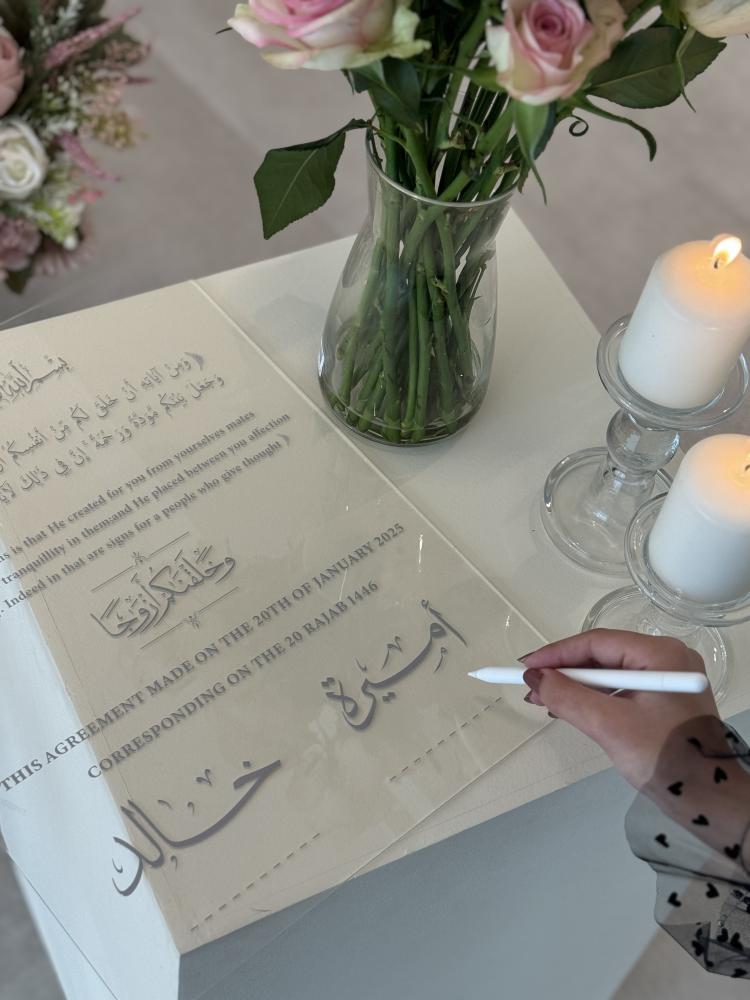 بسم الله
﴿وَمِنْ آيَاتِهِ أَنْ خَلَقَ لَكُم مِّنْ أَنفُسِكُمْ
وَجَعَلَ بَيْنَكُم مَّوَدَّةً وَرَحْمَةً إِنَّ فِي ذَٰلِكَ
is that He created for you from yourselves mates
tranquillity in them:and He placed between you affection
. Indeed in that are signs for a people who give thought﴾
وَخَلَقْنَاكُمْ أَزْوَاجًا
THIS AGREEMENT MADE ON THE 20TH OF JANUARY 2025
CORRESPONDING ON THE 20 RAJAB 1446
أميرة
خالد